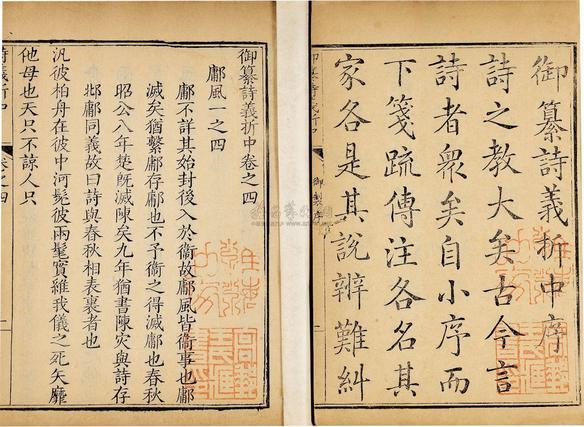 御纂詩義折中序
詩之教大矣古今言
詩者衆矣自小序而
下箋疏傳注各名其
家各是其說辨難糾
御製序
御纂詩義折中卷之四
鄘風一之四
鄘不詳其始封後入於衞故鄘風皆衞事也鄘
滅矣猶繫鄘存鄘也不予衞之得滅鄘也春秋
昭公八年楚旣滅陳矣九年猶書陳灾與詩存
邶鄘同義故曰詩與春秋相表裏者也
汎彼柏舟在彼中河髧彼兩髦實維我儀之死矢靡
他母也天只不諒人只
詩義折中
卷之四